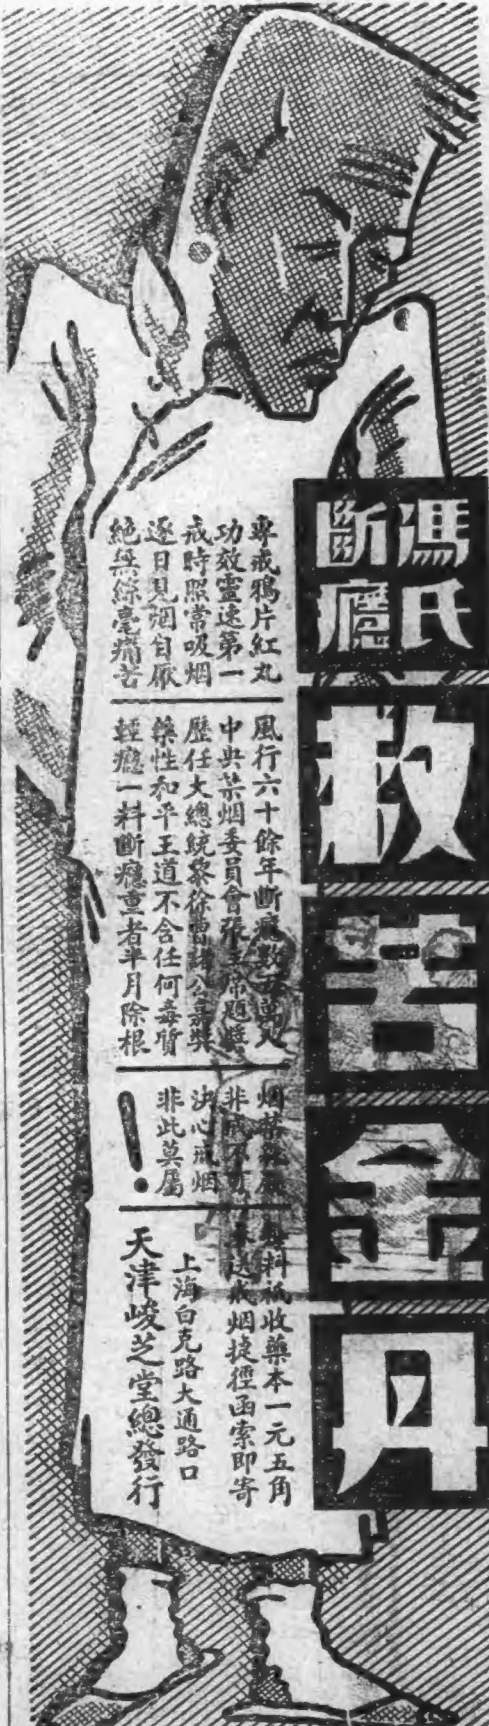 馮氏
斷癮
救苦金丹
專戒鴉片紅丸
功效靈速第一
戒時照常吸烟
逐日見烟自厭
絕無絲毫痛苦
風行六十餘年斷癮數百萬人
中央禁烟委員會張主席題獎
歷任大總統黎徐曹諸公嘉獎
藥性和平王道不含任何毒質
輕癮一料斷癮重者半月除根
烟禁
非戒不可
決心戒烟
非此莫屬
！
每料祇收藥本一元五角
送戒烟捷徑函索即寄
上海白克路大通路口
天津峻芝堂總發行